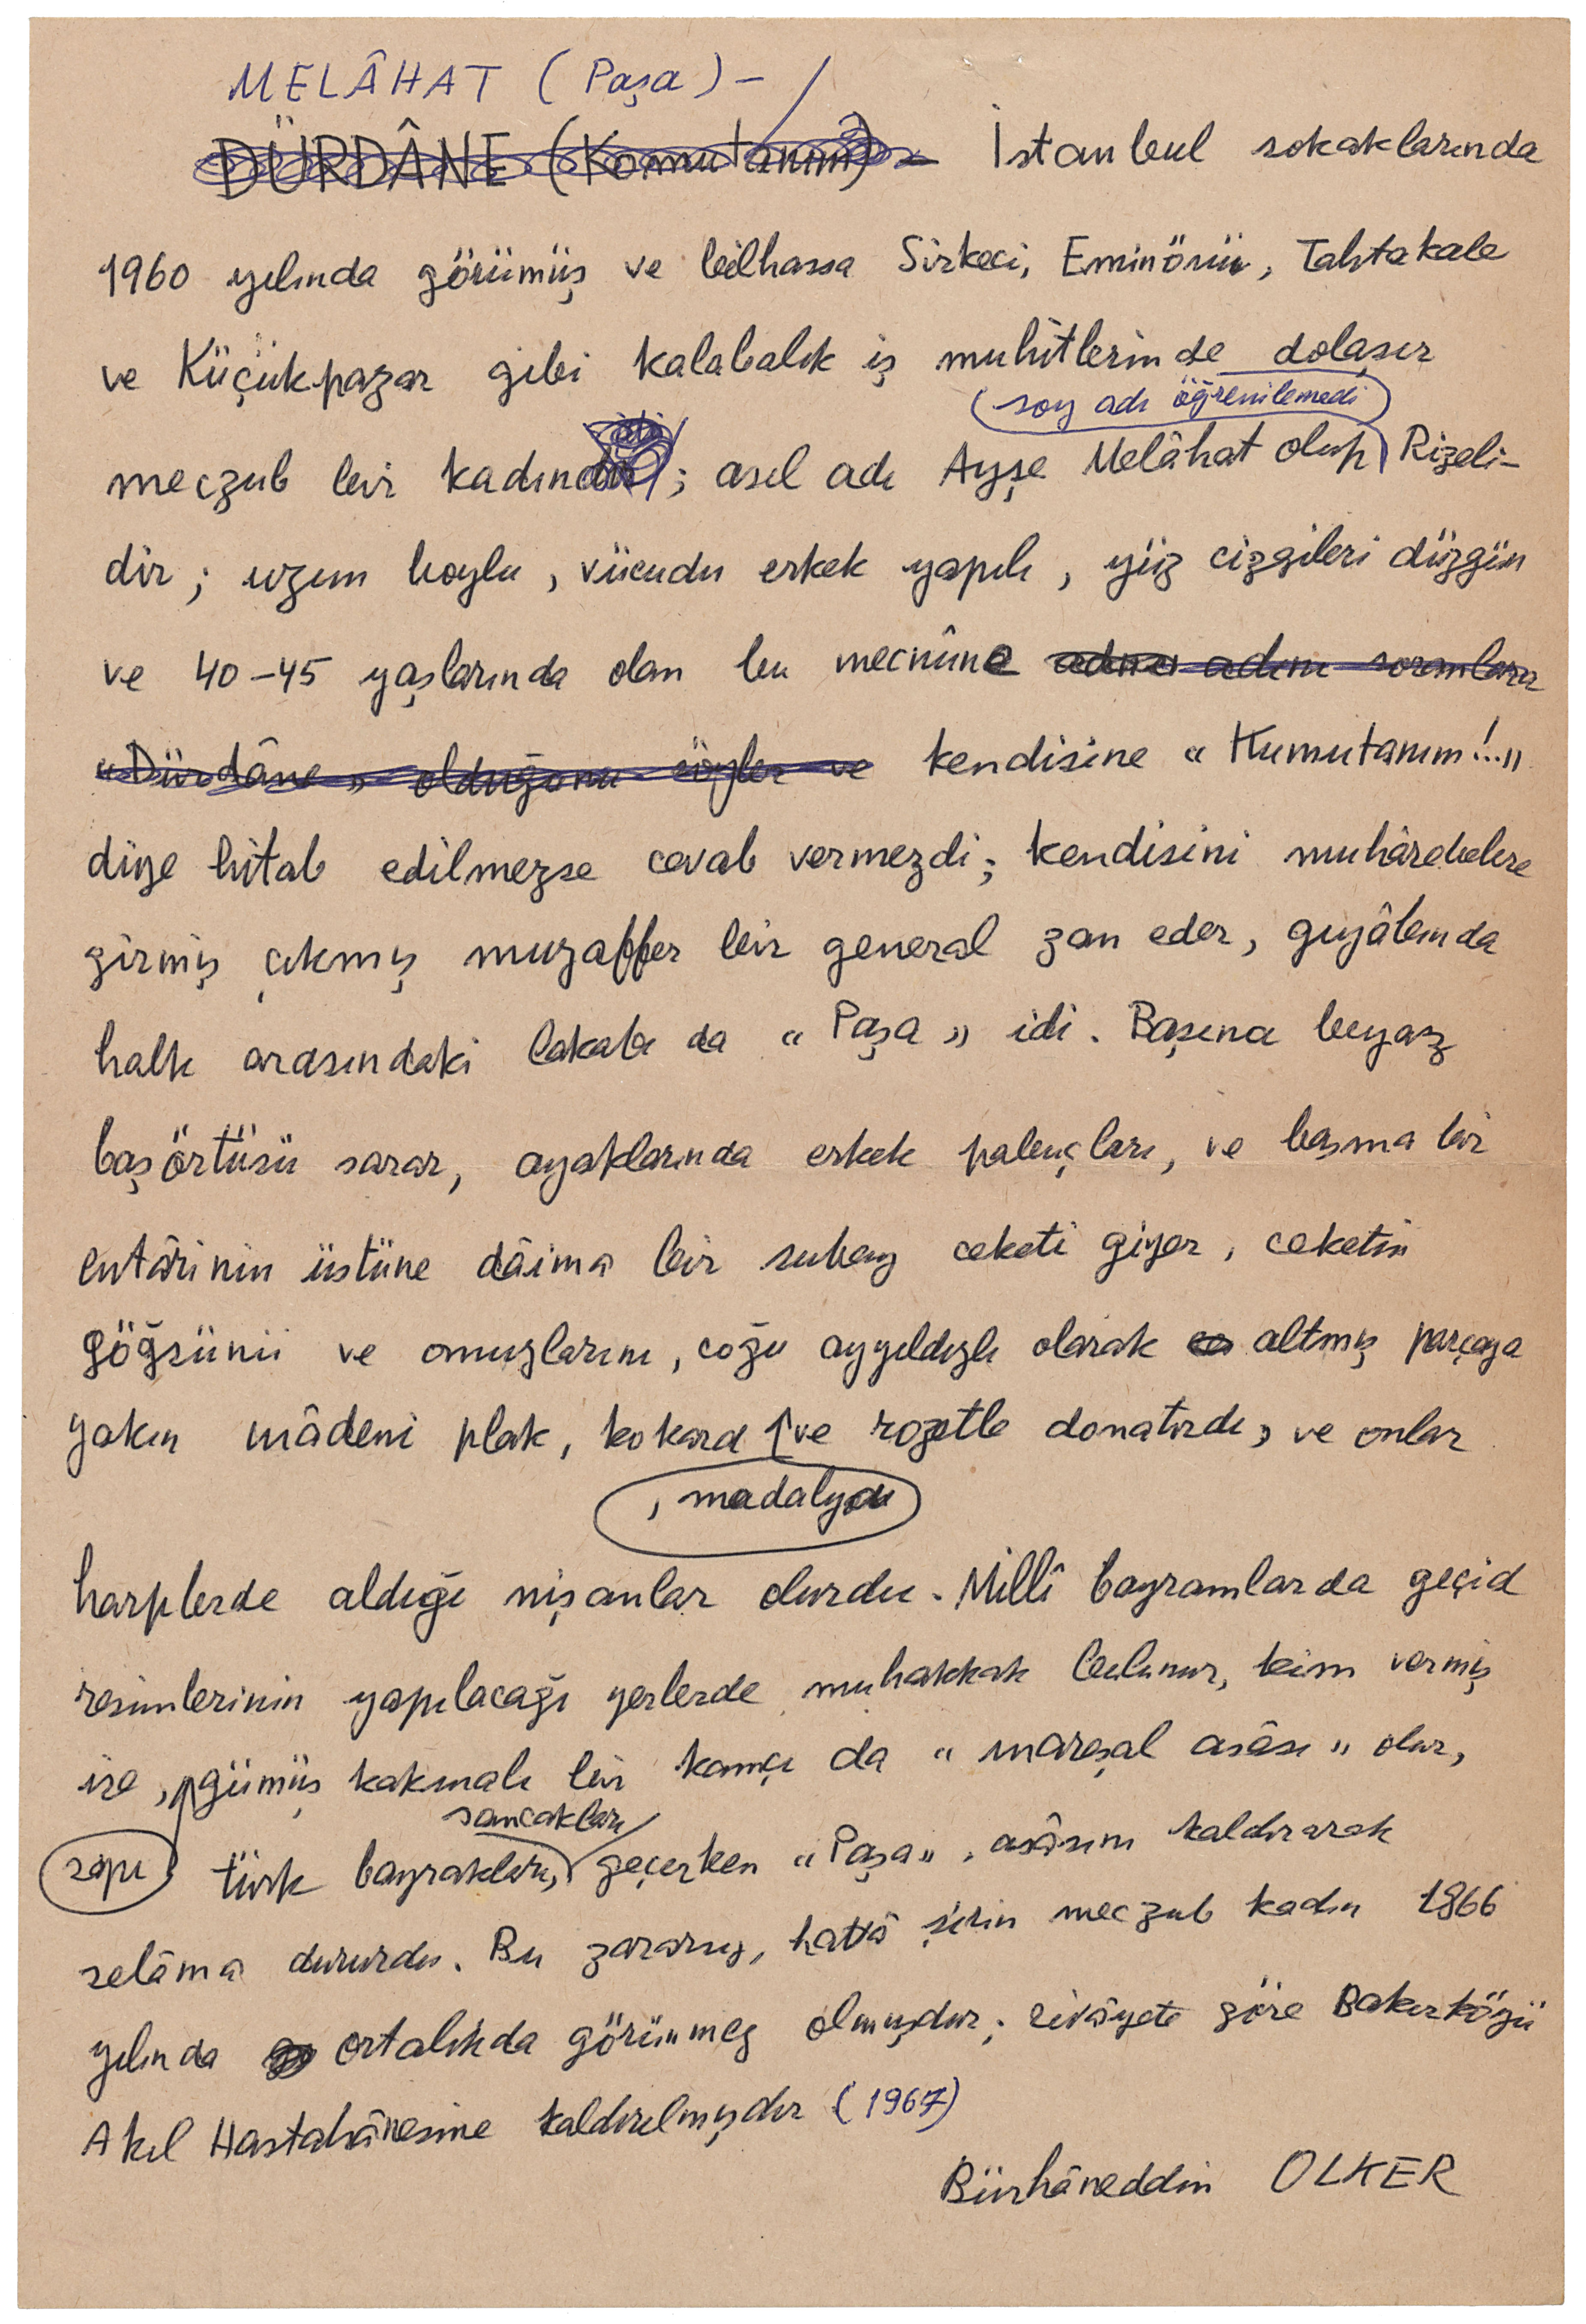 MELÂHAT (Paşa) –
DÜRDÂNE (Komutanım) – İstanbul sokaklarında
1960 yılında görümüş ve bilhassa Sirkeci, Eminönü, Tahtakale
ve Küçükpazar gibi kalabalık iş muhitlerinde dolaşır
(soy adı öğrenilemedi)
meczub bir kadındı ; asıl adı Ayşe Melâhat olup Rizeli-
dir ; uzun boylu, vücudu erkek yapılı, yüz cizgileri düzgün
ve 40-45 yaşlarında olan bu mecnûne adını soranlara
"Dürdâne" olduğunu söyler ve kendisine "Kumutanım!.."
diye hitab edilmezse cevab vermezdi; kendisini muhârebelere
girmiş çıkmış muzaffer bir general zan eder, gıyâbında
halk arasındaki lakabı da "Paşa" idi. Başına beyaz
başörtüsü sarar, ayaklarında erkek pabuçları, ve basma bir
entârinin üstüne dâima bir subay ceketi giyer, ceketin
göğsünü ve omuzlarını, coğu ayyıldızlı olarak altmış parçaya
yakın mâdeni plak, kokard ve rozetle donatırdı, ve onlar
, madalya
harplerde aldığı nişanlar olurdu. Millî bayramlarda geçid
resimlerinin yapılacağı yerlerde muhakkak bulunur, kim vermiş
ise, gümüş kakmalı bir kamçı da "mareşal asâsı" olur,
sancakları
sapı türk bayrakları, geçerken "Paşa", asâsını kaldırarak
selâma dururdu. Bu zararsız, hattâ şirin meczub kadın 1966
yılında ortalıkda görünmez olmuşdur; rivâyete göre Bakırköyü
Akıl Hastahânesine kaldırılmışdır (1967)
Bürhâneddin OLKER